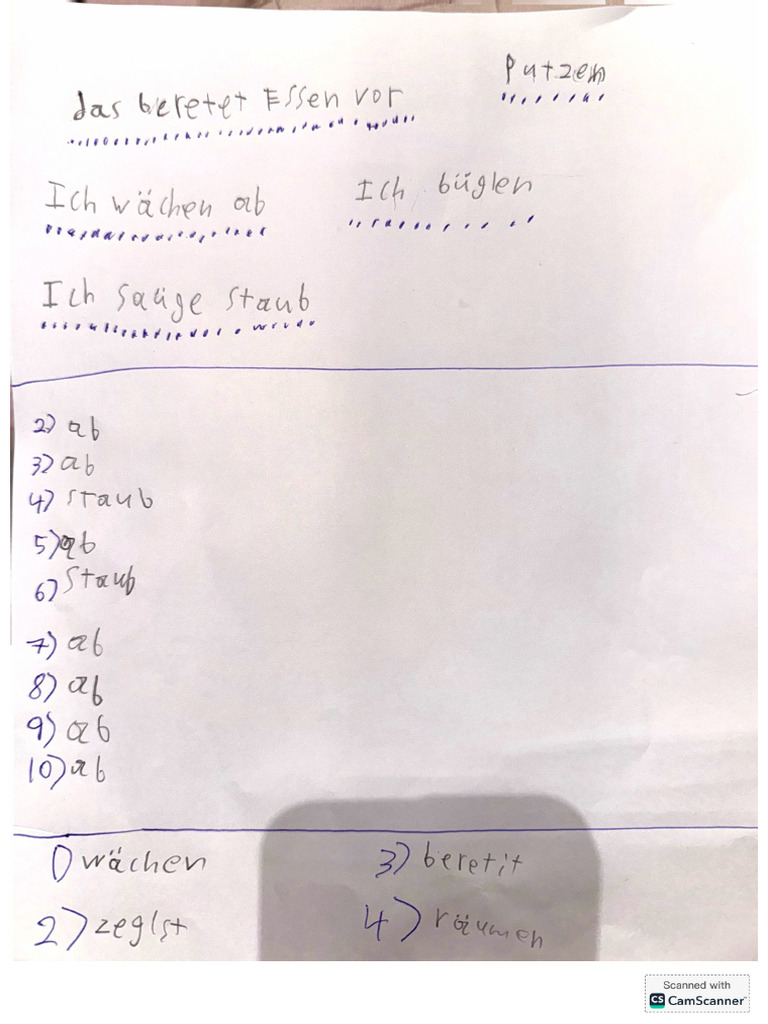 das beretet Essen vor
Putzen
Ich wächen ab
Ich büglen
Ich saüge staub
2) ab
3) ab
4) staub
5) ab
6) staub
7) ab
8) ab
9) ab
10) ab
1) wächen
3) beretit
2) zeglst
4) räumen
Scanned with
CS CamScanner